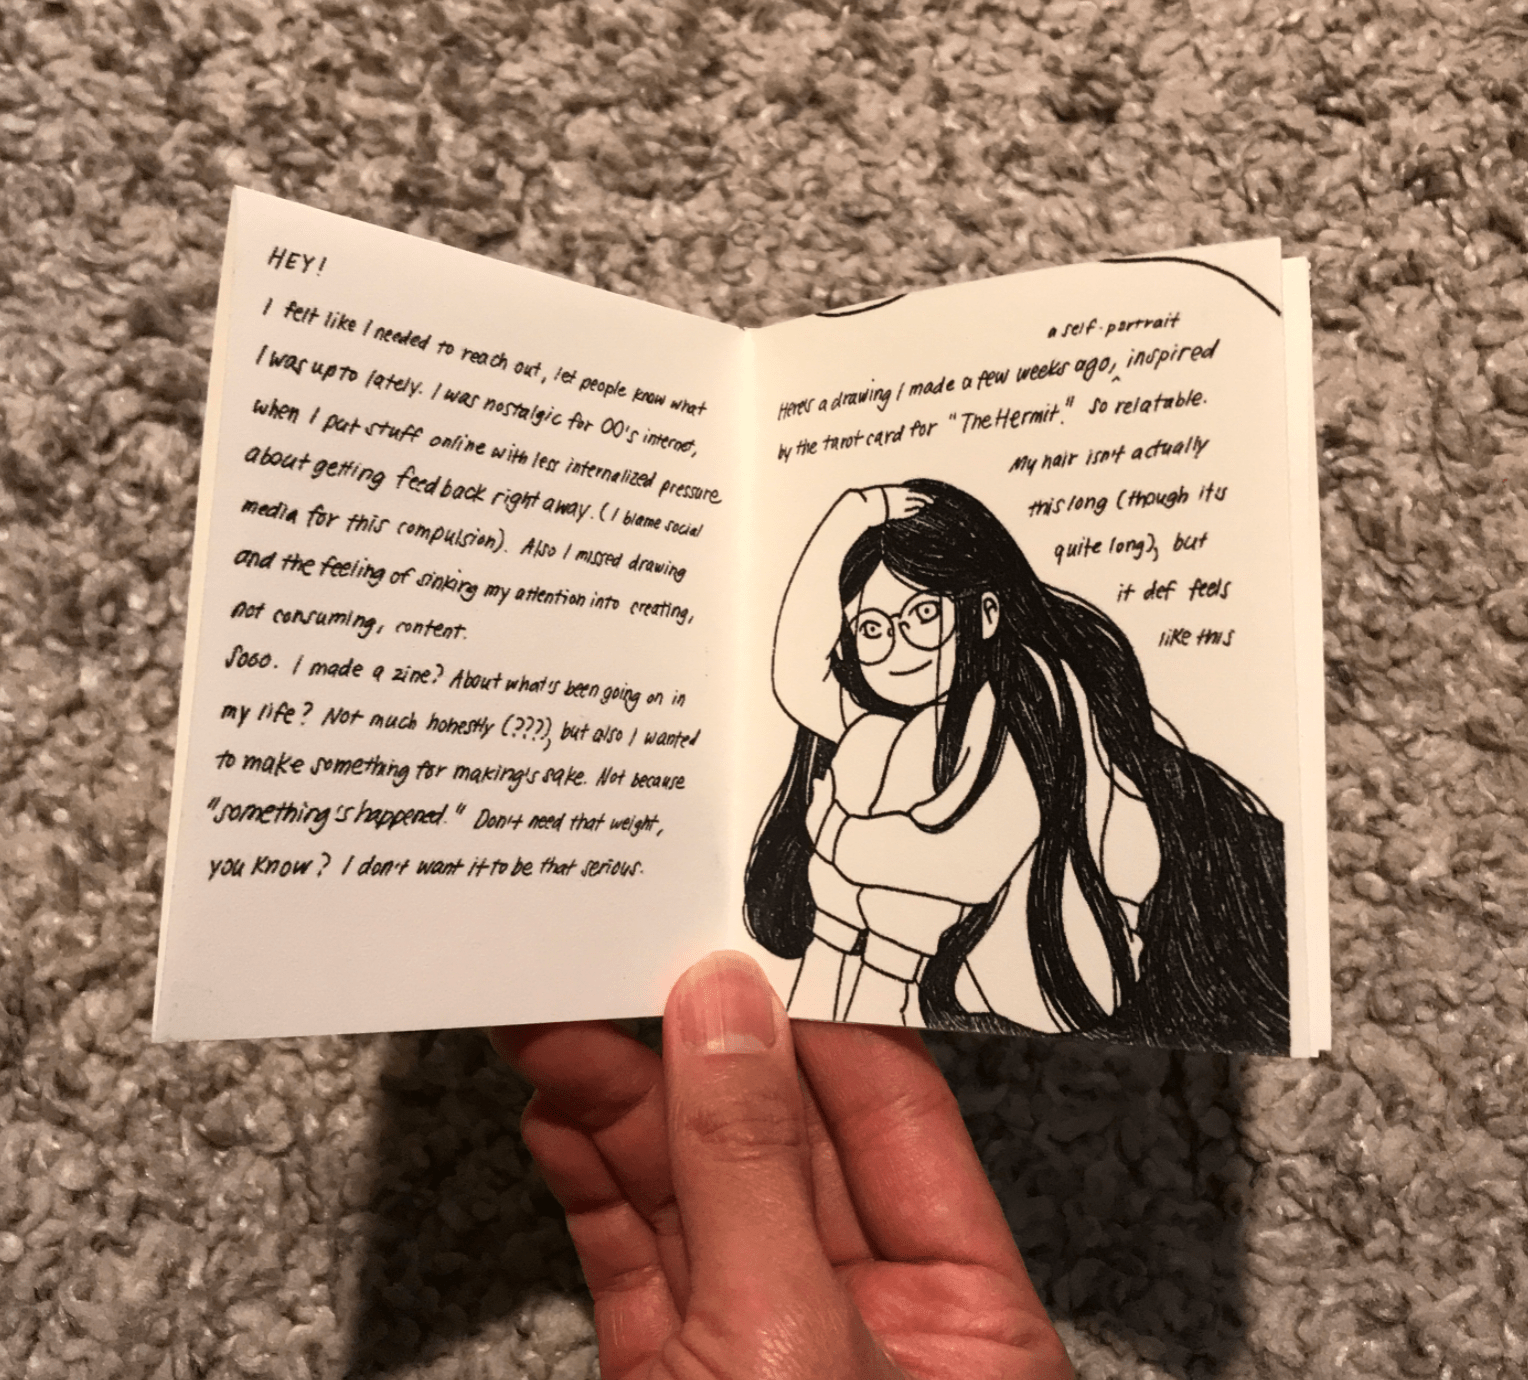 HEY!
I felt like I needed to reach out, let people know what
I was up to lately. I was nostalgic for 00's internet,
when I put stuff online with less internalized pressure
about getting feedback right away. (I blame social
media for this compulsion). Also I missed drawing
and the feeling of sinking my attention into creating,
not consuming, content.
Sooo. I made a zine? About what's been going on in
my life? Not much honestly (???), but also I wanted
to make something for making's sake. Not because
"something's happened." Don't need that weight,
you know? I don't want it to be that serious.
a self-portrait
Here's a drawing I made a few weeks ago, ^ inspired
by the tarot card for "The Hermit." So relatable.
My hair isn't actually
this long (though it is
quite long), but
it def feels
like this